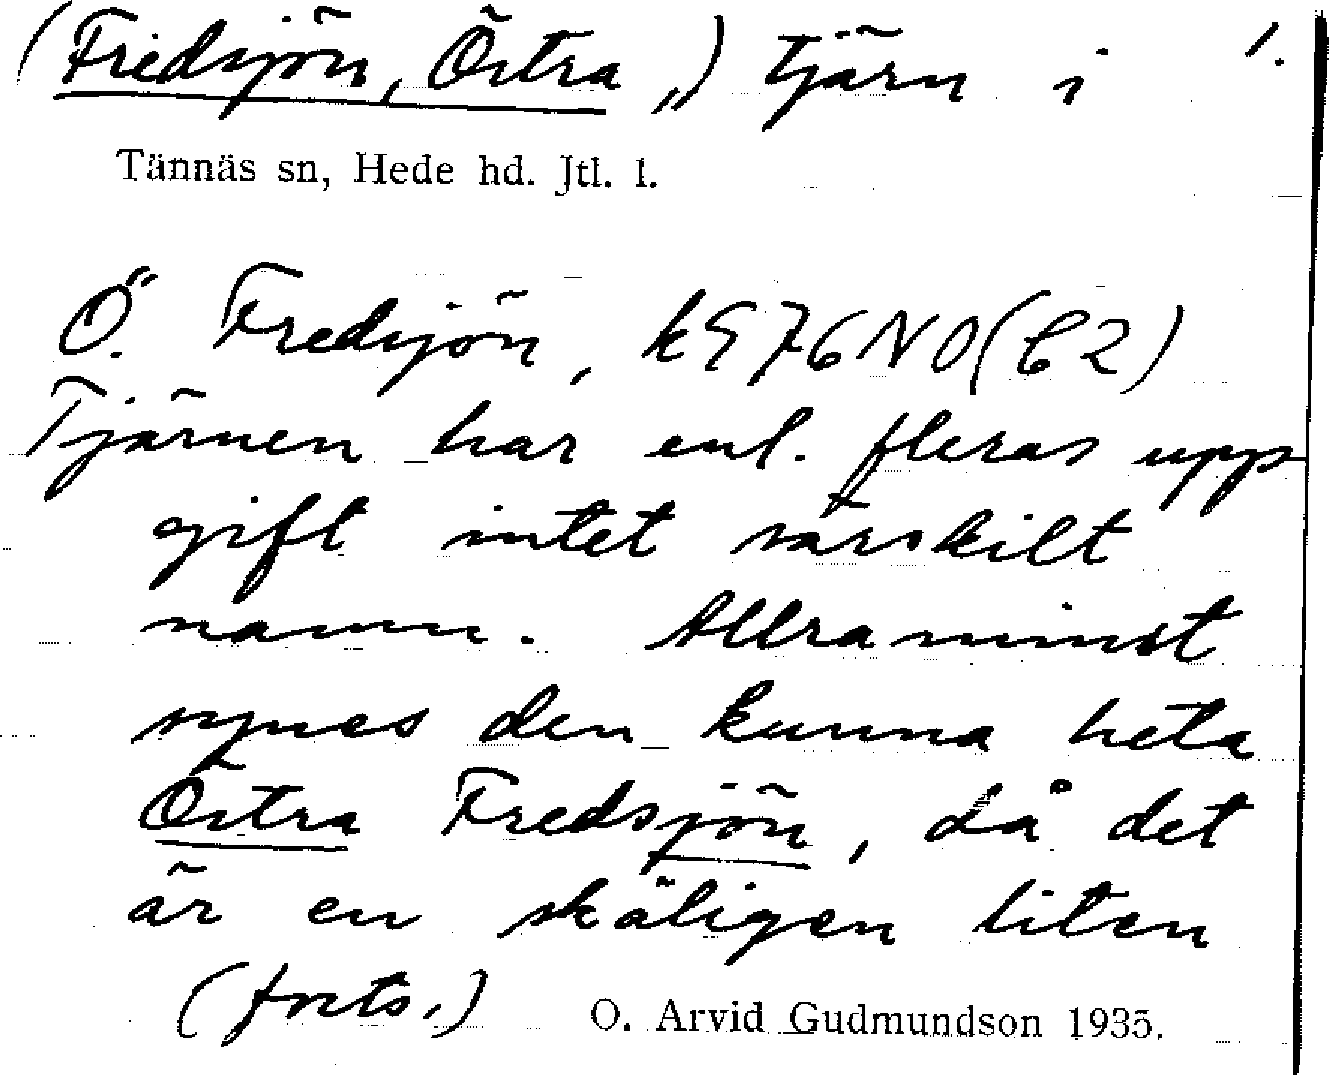 (Fredsjön, Östra „) tjärn i 1.
Tännäs sn, Hede hd. Jtl. l.
Ö. Fredsjön, k976NO(C2)
Tjärnen har enl. fleras upp
gift intet särskilt
namn. Allra minst
synes den kunna heta
Östra Fredsjön, då det
är en skäligen liten
(forts.) O. Arvid Gudmundson 1935.